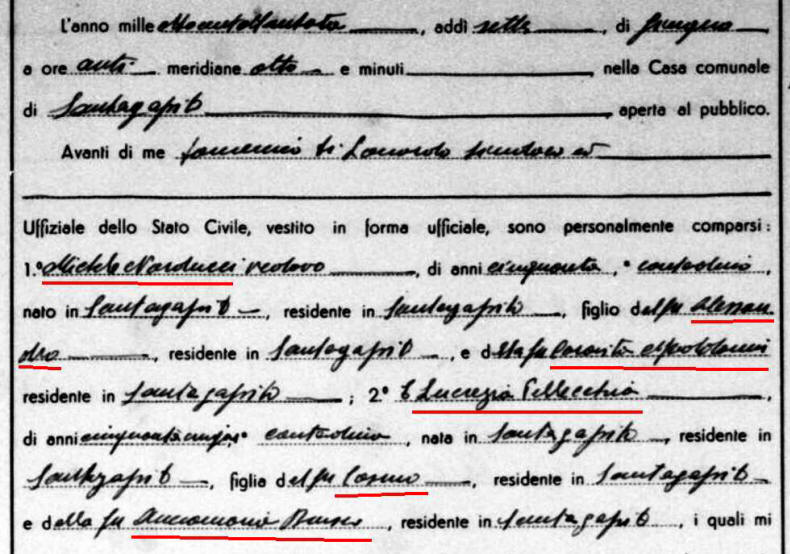 L'anno mille ottocentottantotto, addì sette, di Giugno,
a ore anti meridiane otto e minuti, nella Casa comunale
di Santagapito aperta al pubblico.
Avanti di me Domenico di Leonardo Sindaco ed
Uffiziale dello Stato Civile, vestito in forma ufficiale, sono personalmente comparsi:
1.° Michele Narducci vedovo, di anni cinquanta, contadino,
nato in Santagapito, residente in Santagapito, figlio del fu Alessan
dro, residente in Santagapito, e della fu
residente in Santagapito; 2° E Lucrezia Pellecchia,
di anni cinquanta, contadina, nata in Santagapito, residente in
Santagapito, figlia del fu Cosmo, residente in Santagapito
e della fu Annamaria, residente in Santagapito, i quali mi